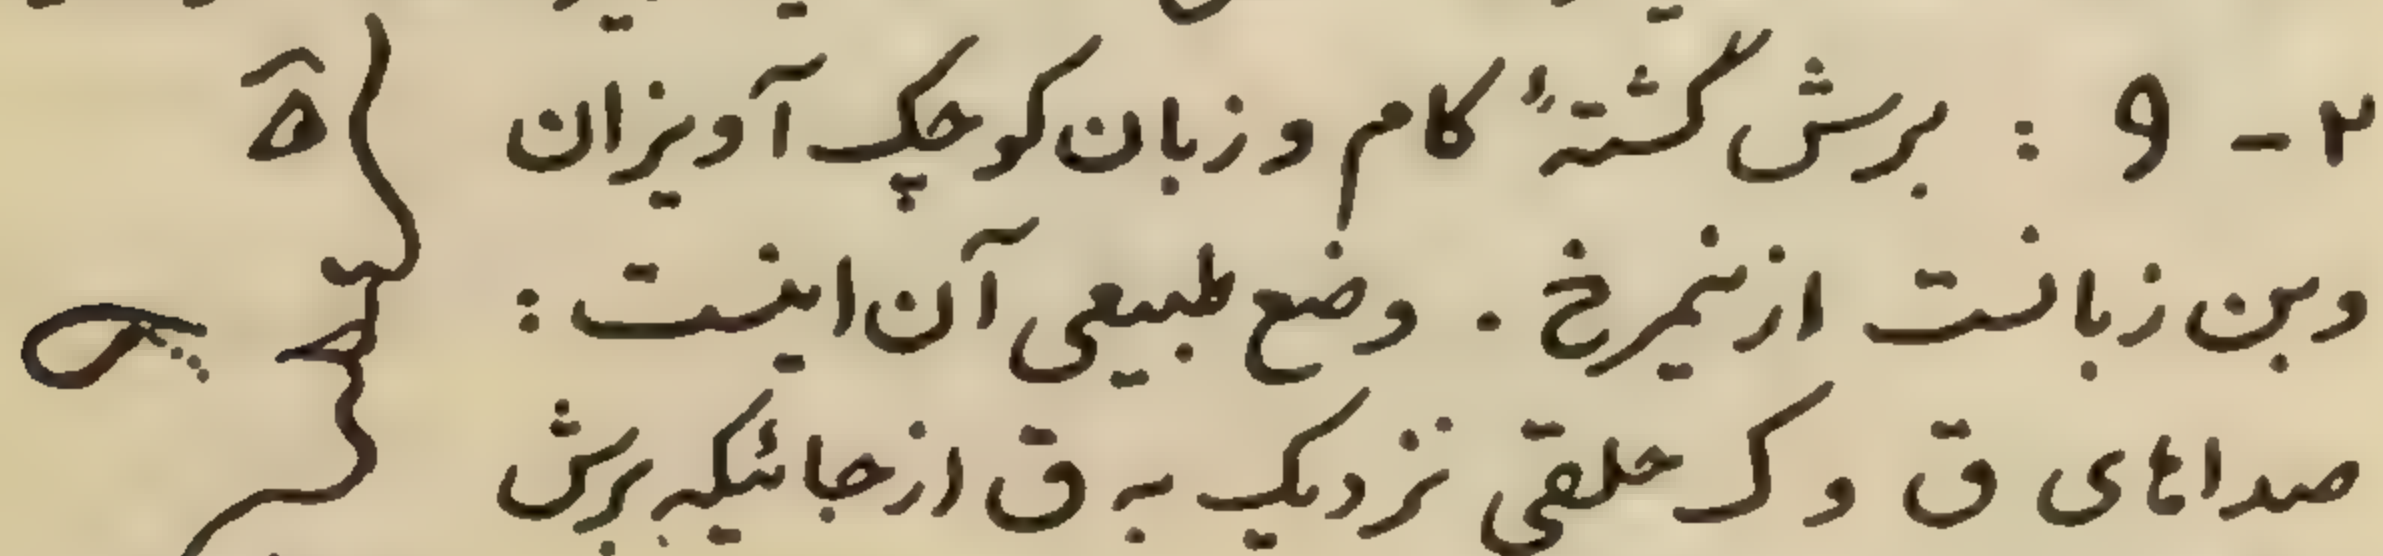 ۲ - ۹ : برش گشتهٔ کام و زبان کوچک آویزان
وبن زبانست از نیمرخ . وضع طبیعی آن اینست :
صداهای ق و ک حلقی نزدیک به ق از جائیکه برش